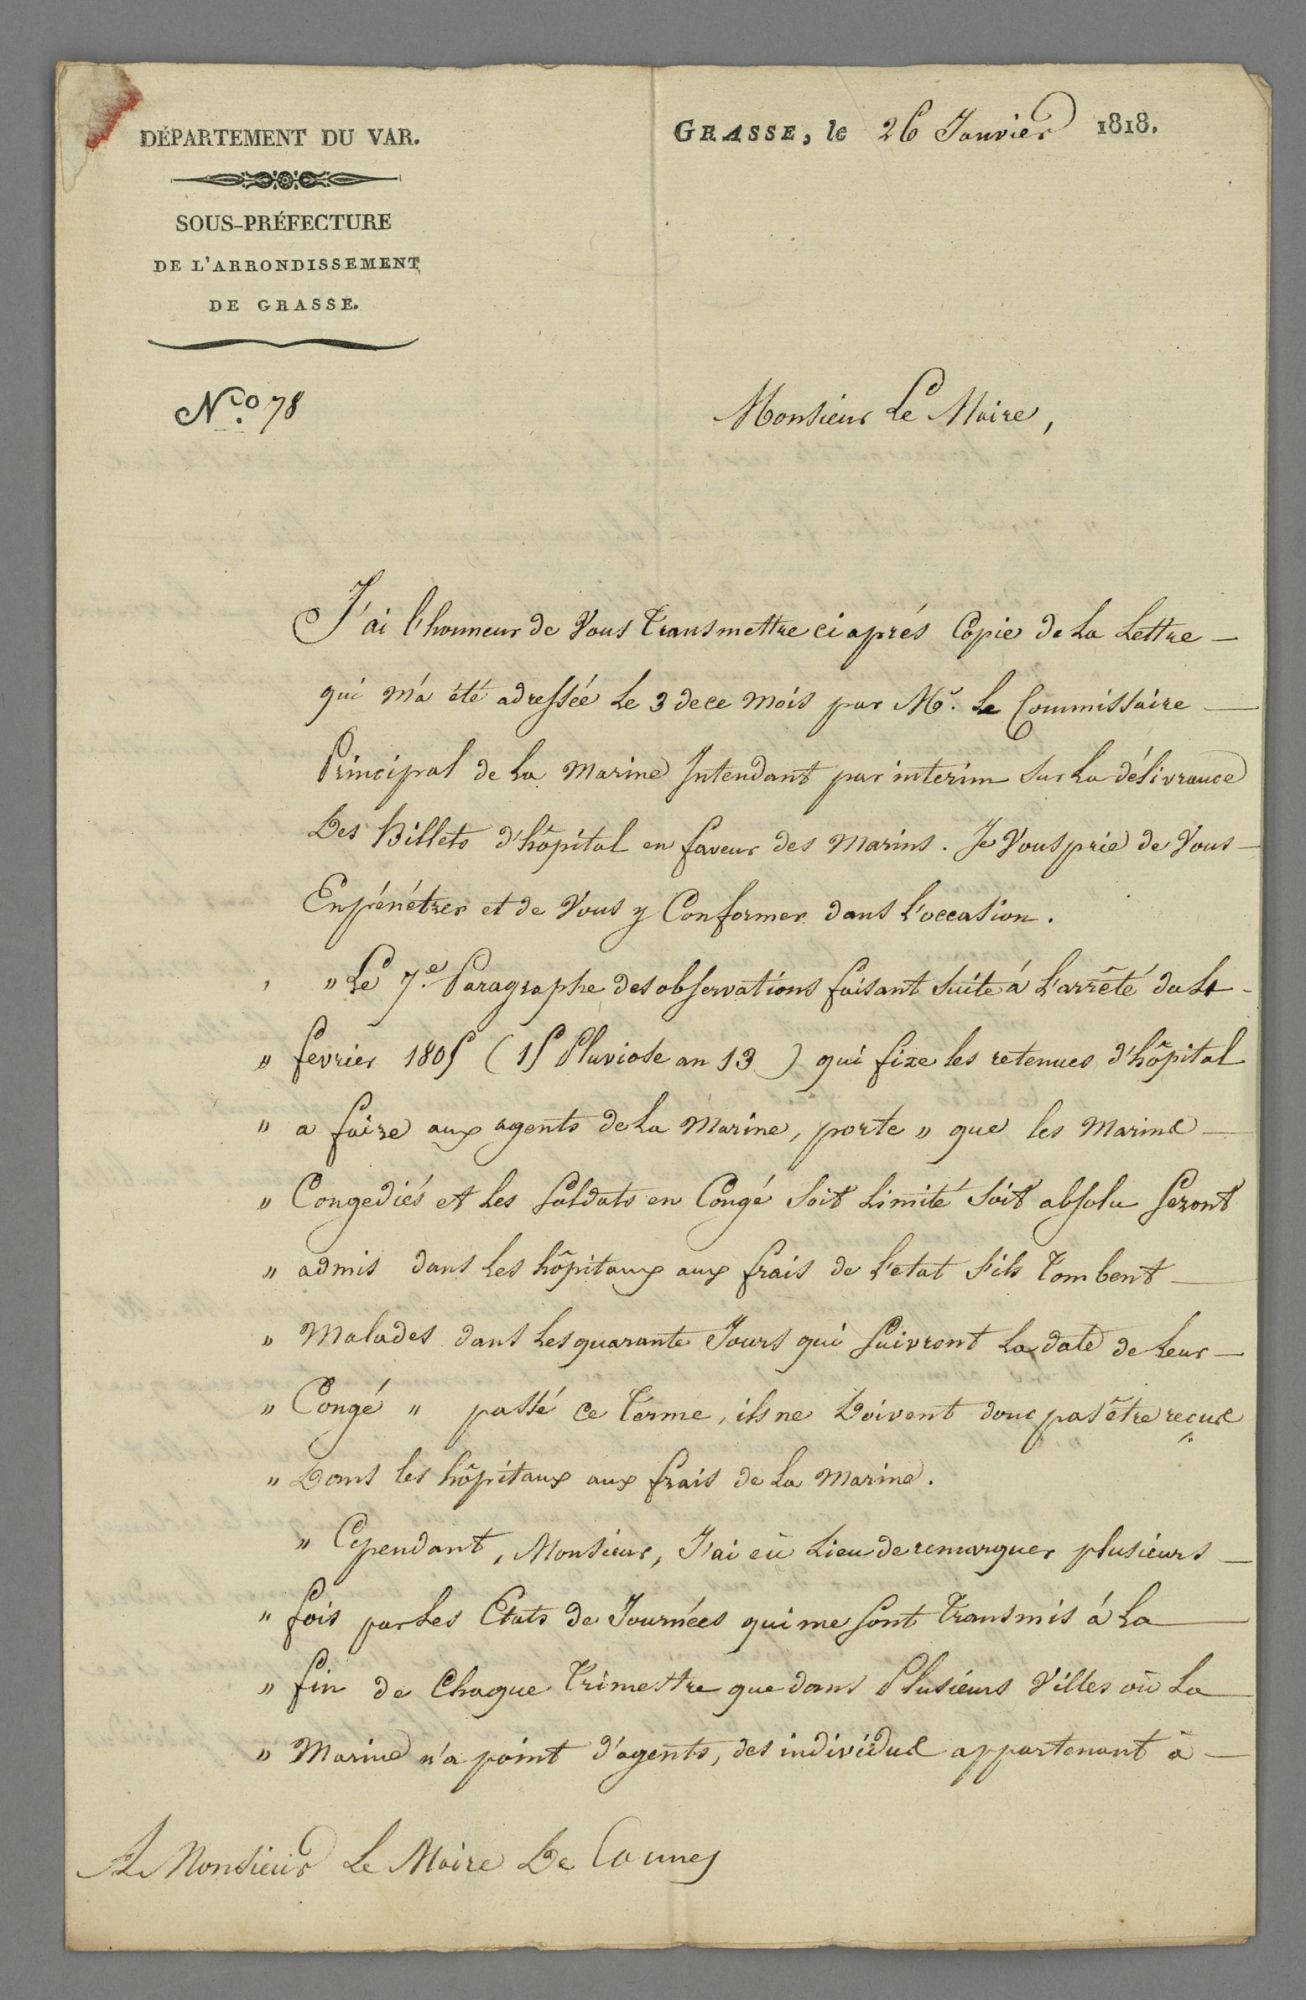 DÉPARTEMENT DU VAR.
SOUS-PRÉFECTURE
DE L'ARRONDISSEMENT
DE GRASSE.
N.º 78
GRASSE, le 26 Janvier 1818.
Monsieur Le Maire,
J'ai l'honneur de Vous transmettre ci après Copie de La Lettre —
qui m'a été adressée Le 3 de ce mois par Mr. Le Commissaire —
Principal de La Marine Intendant par interim Sur La délivrance
Des Billets d'hôpital en faveur des Marins. Je Vous prie de Vous —
En pénétrer et de Vous y Conformer dans l'occasion.
" Le 7.e Paragraphe des observations faisant Suite à L'arrêté du 4 -
" fevrier 1805 (15 Pluviose an 13) qui fixe les retenues d'hôpital
" a faire aux agents de La Marine, porte " que les Marins —
" Congediés et Les Soldats en Congé Soit Limité Soit absolu Seront
" admis dans Les hôpitaux aux frais de l'etat S'ils Tombent —
" Malades dans Les quarante Jours qui Suivront La date de Leur —
" Congé " passé ce terme, ils ne Doivent donc pas être reçus
" Dans les hôpitaux aux frais de La Marine.
" Cependant, Monsieur, J'ai eû Lieu de remarquer plusieurs —
" fois par Les Etats de Journées qui me Sont Transmis à La —
" fin de Chaque Trimestre que dans Plusieurs Villes où La —
" Marine n'a point d'agents, des individus appartenant à —
A Monsieur Le Maire De Cannes